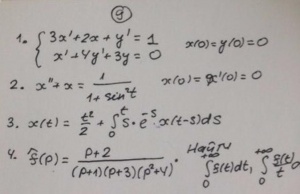 9
1. { 3x' + 2x + y' = 1
x' + 4y' + 3y = 0
x(0) = y(0) = 0
2. x'' + x = 1/(1 + sin²t) x(0) = x'(0) = 0
3. x(t) = t²/2 + ∫₀ᵗ s · e⁻ˢ x(t-s)ds
4. f̂(p) = (p+2)/((p+1)(p+3)(p²+4)) . Найти ∫₀^{+∞} f(t)dt, ∫₀^{+∞} f(t)/t d